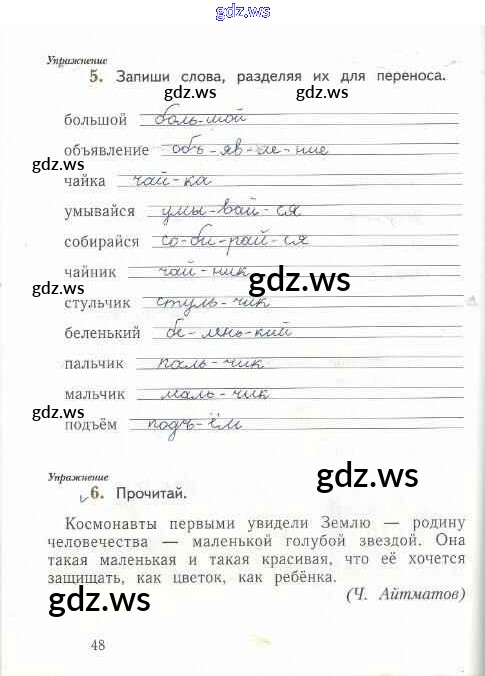 gdz.ws
Упражнение
5. Запиши слова, разделяя их для переноса.
gdz.ws gdz.ws
большой боль-шой
объявление объ-яв-ле-ние
gdz.ws
чайка чай-ка
умывайся умы-вай-ся
собирайся со-би-рай-ся
чайник чай-ник
gdz.ws gdz.ws
стульчик стуль-чик
беленький бе-лень-кий
пальчик паль-чик
мальчик маль-чик
gdz.ws
подъём подъ-ём
Упражнение
gdz.ws
6. Прочитай.
Космонавты первыми увидели Землю — родину
человечества — маленькой голубой звездой. Она
такая маленькая и такая красивая, что её хочется
защищать, как цветок, как ребёнка.
gdz.ws gdz.ws
(Ч. Айтматов)
48